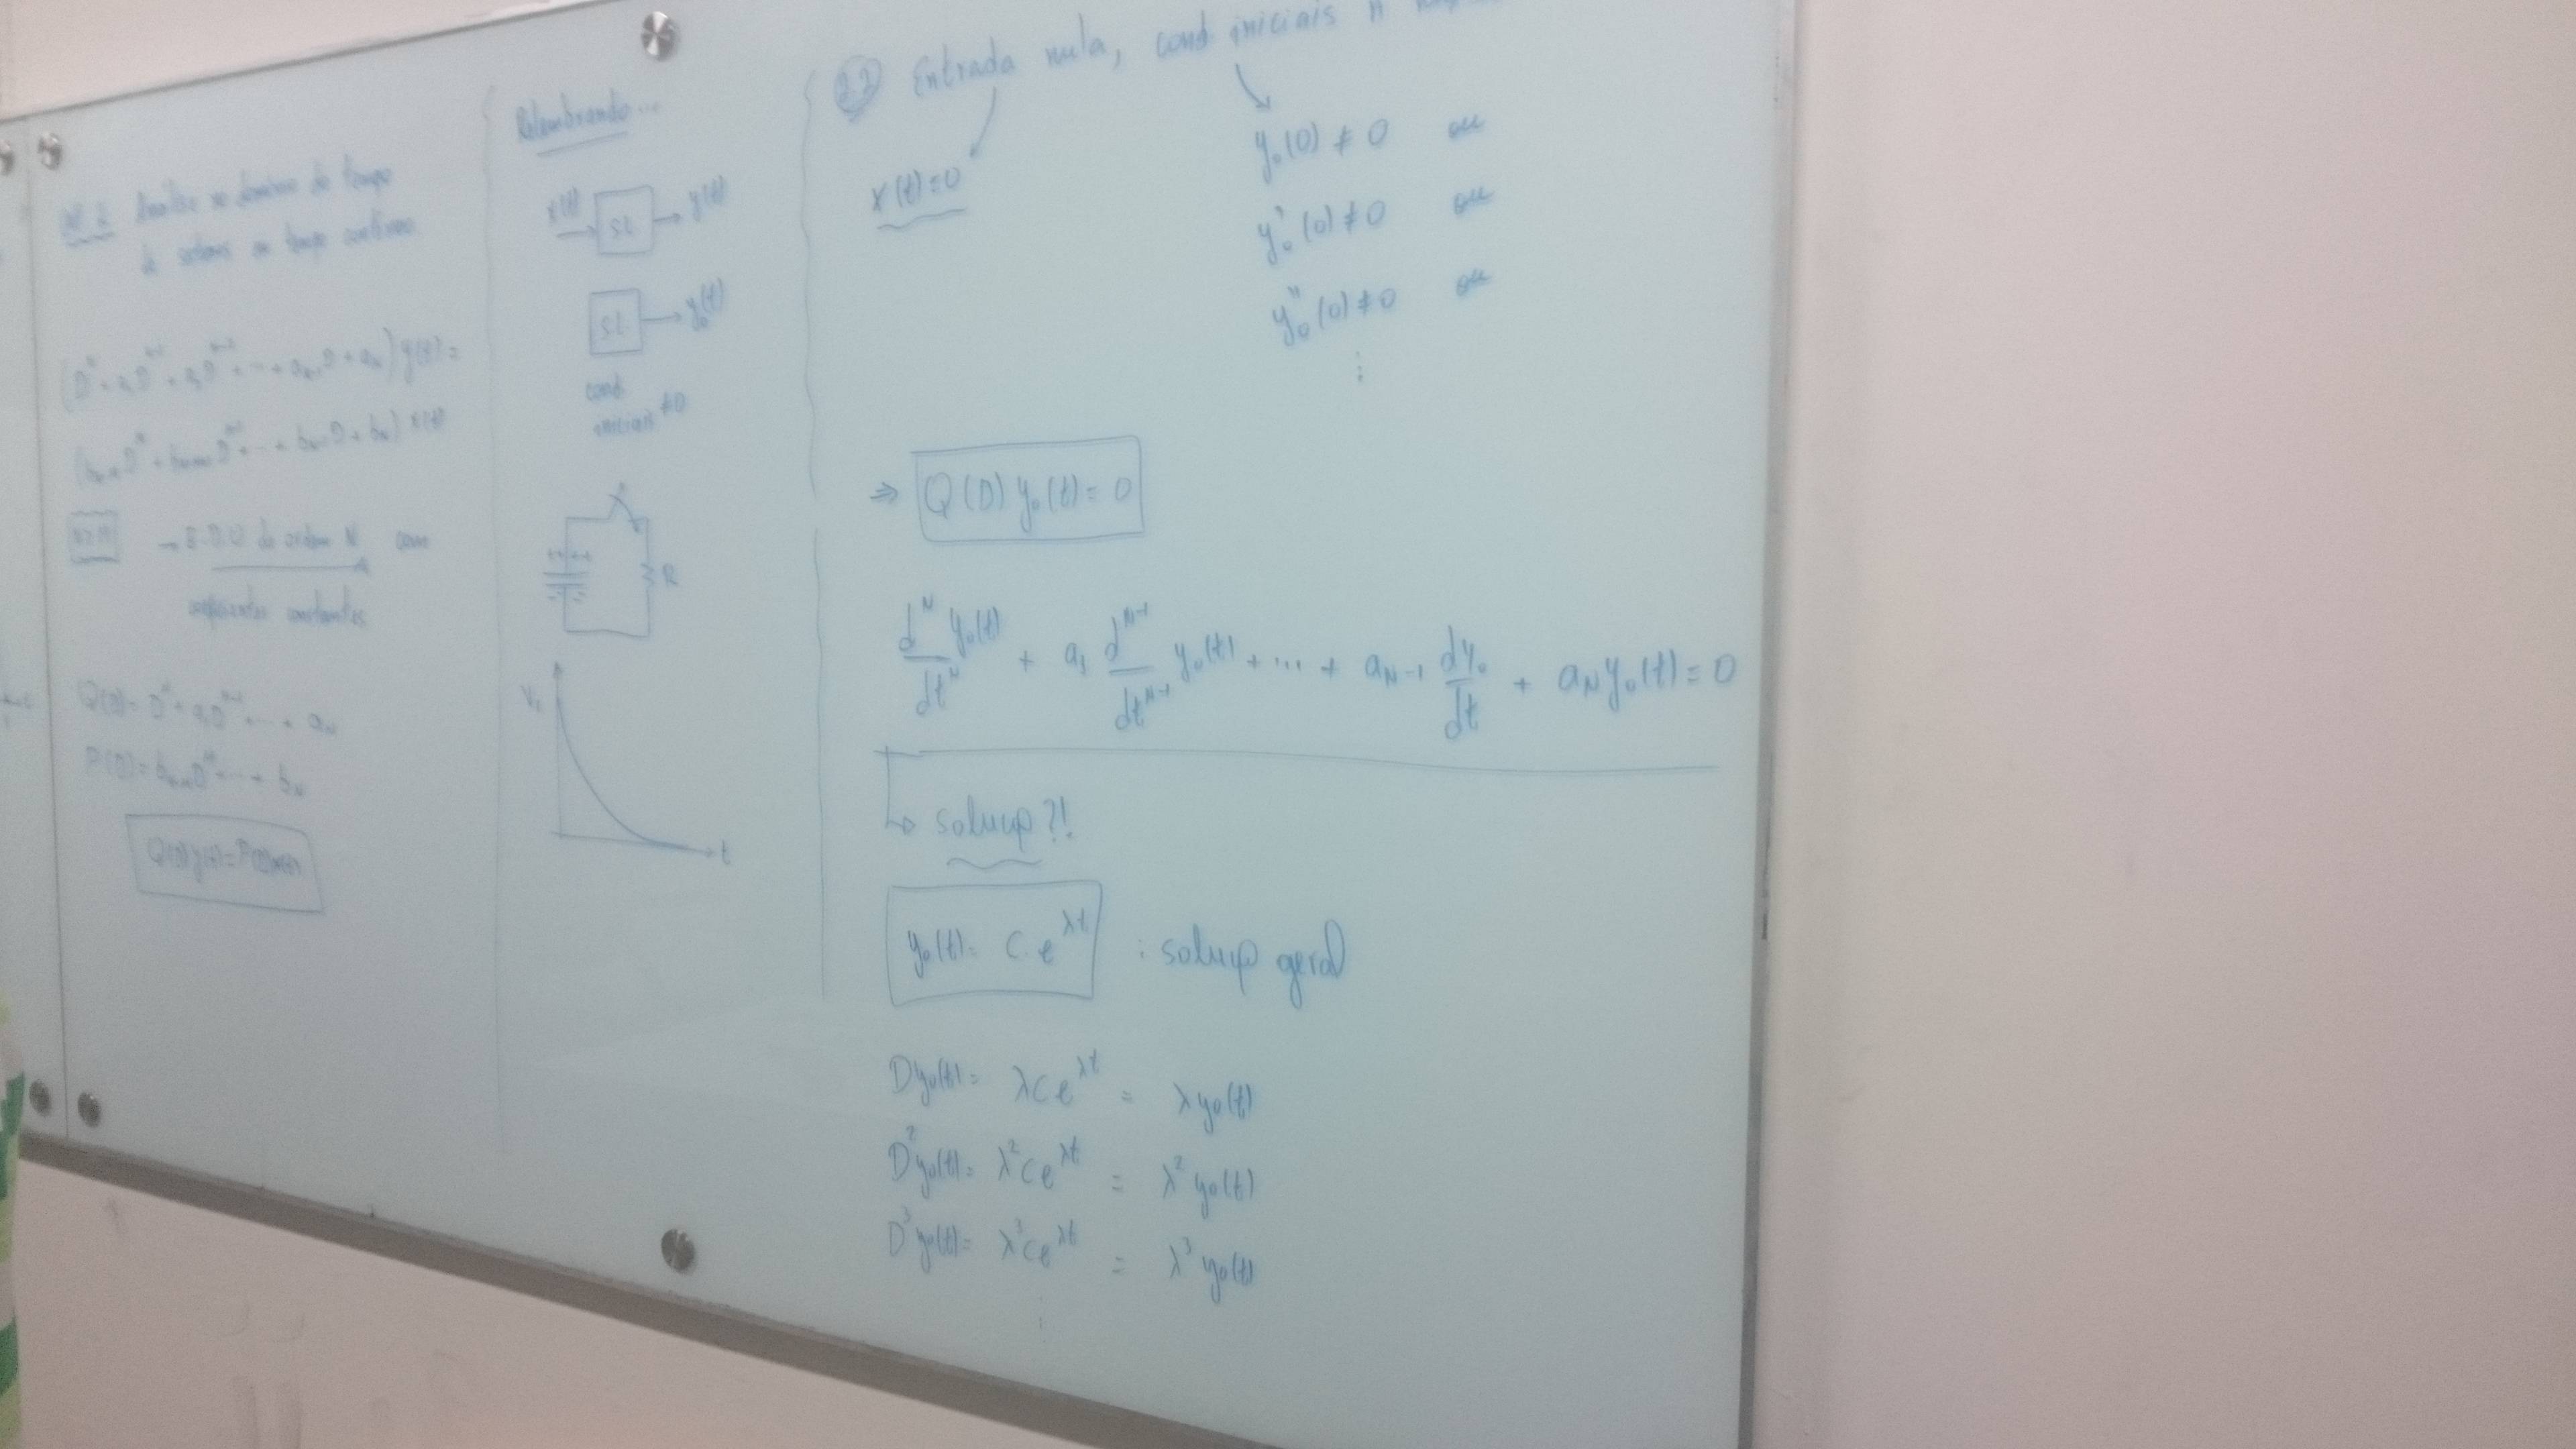 Análise no domínio do tempo
de sistemas em tempo contínuo
(D^N + a₁D^(N-1) + a₂D^(N-2) + ... + a_(N-1)D + a_N) y(t) =
(b_(N-M)D^M + b_(N-M+1)D^(M-1) + ... + b_(N-1)D + b_N) x(t)
→ E.D.O de ordem N com
coeficientes constantes
Q(D) = D^N + a₁D^(N-1) + ... + a_N
P(D) = b_(N-M)D^M + ... + b_N
Q(D) y(t) = P(D) x(t)
Relembrando...
x(t) → SL → y(t)
SL → y₀(t)
cond.
iniciais ≠ 0
R
t
2.2 Entrada nula, cond iniciais ñ
x(t) = 0
y₀(0) ≠ 0 ou
y₀'(0) ≠ 0 ou
y₀''(0) ≠ 0 ou
⋮
⇒ Q(D) y₀(t) = 0
d^N/dt^N y₀(t) + a₁ d^(N-1)/dt^(N-1) y₀(t) + ... + a_(N-1) dy₀/dt + a_N y₀(t) = 0
↳ solução ?!
y₀(t) = C.e^(λt) : solução geral
Dy₀(t) = λCe^(λt) = λy₀(t)
D²y₀(t) = λ²Ce^(λt) = λ²y₀(t)
D³y₀(t) = λ³Ce^(λt) = λ³y₀(t)
⋮